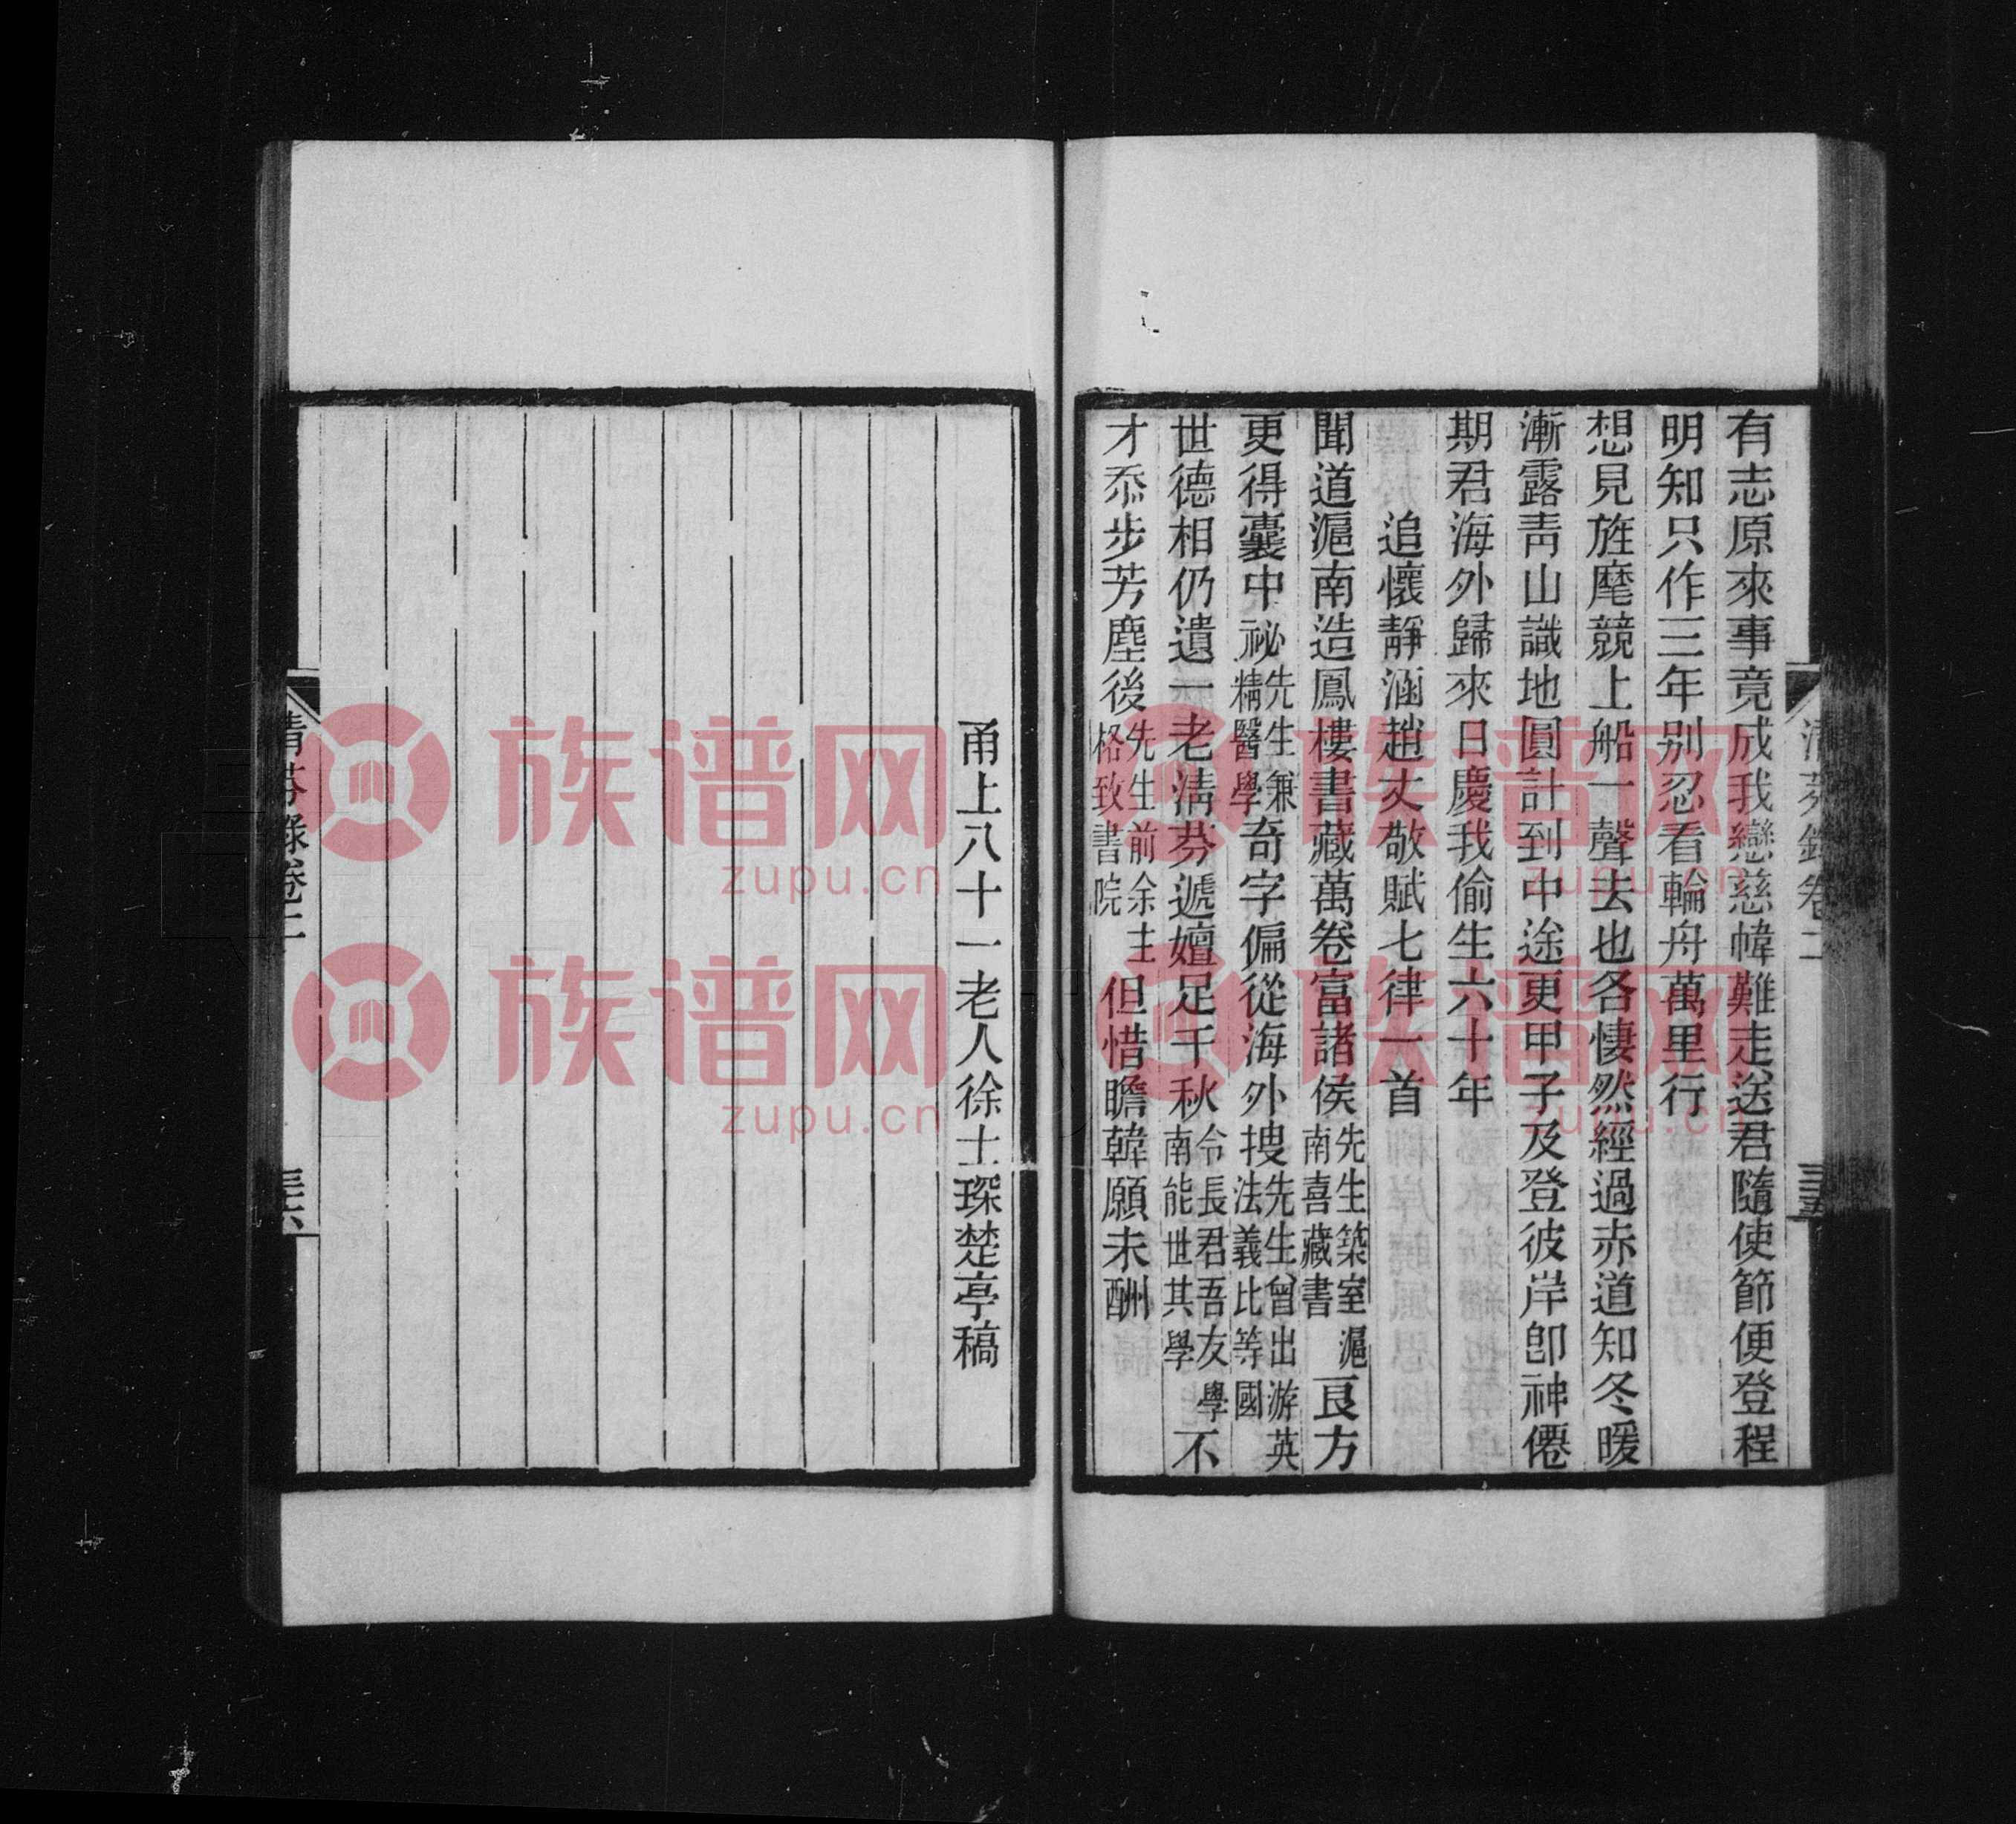 清芬錄卷二
三五
有志原來事竟成我戀慈幃難走送君隨使節便登程
明知只作三年別忍看輪舟萬里行
想見旌麾競上船一聲去也各悽然經過赤道知冬暖
漸露靑山識地圓計到中途更甲子及登彼岸卽神僊
期君海外歸來日慶我偷生六十年
追懷靜涵趙丈敬賦七律一首
聞道滬南造鳳樓書藏萬卷富諸侯先生築室滬南喜藏書良方
更得囊中祕先生兼精醫學奇字偏從海外搜先生曾出游英法義比等國
世德相仍遺一老淸芬遞嬗足千秋令長君吾友學南能世其學不
才忝步芳塵後先生前余主格致書院但惜瞻韓願未酬
甬上八十一老人徐士琛楚亭稿
清芬錄卷二
三六
族谱网
zupu.cn
族谱网
zupu.cn
族谱网
zupu.cn
族谱网
zupu.cn